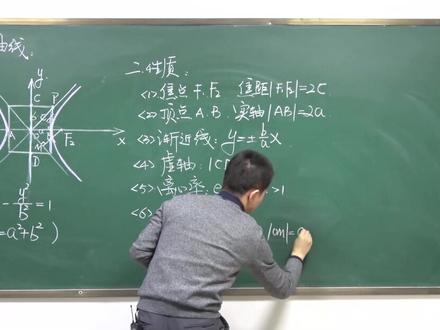 曲线:
y
C
P
F₂
x
D
-y²/b²=1
=a²+b² )
二.性质:
<1>.焦点F₁F₂ 焦距|F₁F₂|=2C.
<2>.顶点A.B.实轴|AB|=2a.
<3>渐近线:y=±b/a x.
<4>虚轴:|C
<5>离心率:e >1
<6>
|OM|=